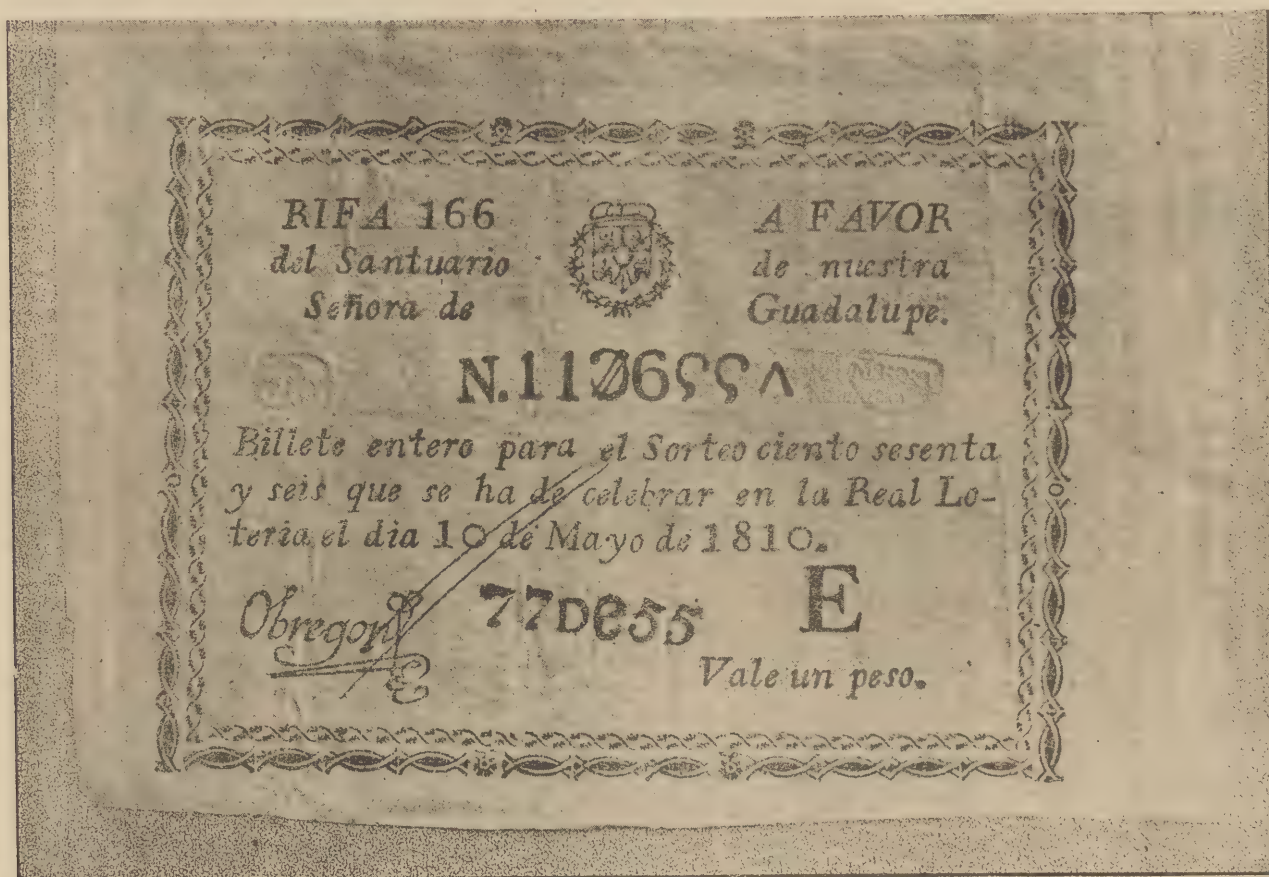 RIFA 166 A FAVOR
del Santuario de nuestra
Señora de Guadalupe.
Billete entero para el Sorteo ciento sesenta
y seis que se ha de celebrar en la Real Lo-
teria el dia 10 de Mayo de 1810.
Obregon 77De55 E
Vale un peso.